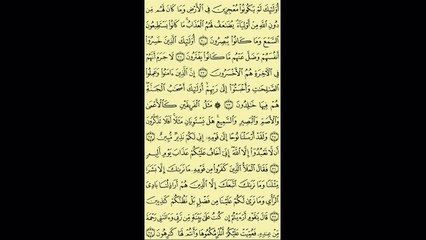 أُولَٰئِكَ لَمْ يَكُونُوا۟ مُعْجِزِينَ فِى ٱلْأَرْضِ وَمَا كَانَ لَهُم مِّن
دُونِ ٱللَّهِ مِنْ أَوْلِيَآءَ يُضَٰعَفُ لَهُمُ ٱلْعَذَابُ مَا كَانُوا۟ يَسْتَطِيعُونَ
ٱلسَّمْعَ وَمَا كَانُوا۟ يُبْصِرُونَ ٢٠ أُولَٰئِكَ ٱلَّذِينَ خَسِرُوٓا۟
أَنفُسَهُمْ وَضَلَّ عَنْهُم مَّا كَانُوا۟ يَفْتَرُونَ ٢١ لَا جَرَمَ أَنَّهُمْ
فِى ٱلْءَاخِرَةِ هُمُ ٱلْأَخْسَرُونَ ٢٢ إِنَّ ٱلَّذِينَ ءَامَنُوا۟ وَعَمِلُوا۟
ٱلصَّٰلِحَٰتِ وَأَخْبَتُوٓا۟ إِلَىٰ رَبِّهِمْ أُو۟لَٰٓئِكَ أَصْحَٰبُ ٱلْجَنَّةِ
هُمْ فِيهَا خَٰلِدُونَ ٢٣ ۞ مَثَلُ ٱلْفَرِيقَيْنِ كَٱلْأَعْمَىٰ
وَٱلْأَصَمِّ وَٱلْبَصِيرِ وَٱلسَّمِيعِ هَلْ يَسْتَوِيَانِ مَثَلًا أَفَلَا تَذَكَّرُونَ
٢٤ وَلَقَدْ أَرْسَلْنَا نُوحًا إِلَىٰ قَوْمِهِۦٓ إِنِّى لَكُمْ نَذِيرٌ مُّبِينٌ ٢٥
أَن لَّا تَعْبُدُوٓا۟ إِلَّا ٱللَّهَ إِنِّىٓ أَخَافُ عَلَيْكُمْ عَذَابَ يَوْمٍ أَلِيمٍ
٢٦ فَقَالَ ٱلْمَلَأُ ٱلَّذِينَ كَفَرُوا۟ مِن قَوْمِهِۦ مَا نَرَىٰكَ إِلَّا بَشَرًا
مِّثْلَنَا وَمَا نَرَىٰكَ ٱتَّبَعَكَ إِلَّا ٱلَّذِينَ هُمْ أَرَاذِلُنَا بَادِىَ
ٱلرَّأْىِ وَمَا نَرَىٰ لَكُمْ عَلَيْنَا مِن فَضْلٍۭ بَلْ نَظُنُّكُمْ كَٰذِبِينَ
٢٧ قَالَ يَٰقَوْمِ أَرَءَيْتُمْ إِن كُنتُ عَلَىٰ بَيِّنَةٍ مِّن رَّبِّى وَءَاتَىٰنِى رَحْمَةً
مِّنْ عِندِهِۦ فَعُمِّيَتْ عَلَيْكُمْ أَنُلْزِمُكُمُوهَا وَأَنتُمْ لَهَا كَٰرِهُونَ ٢٨